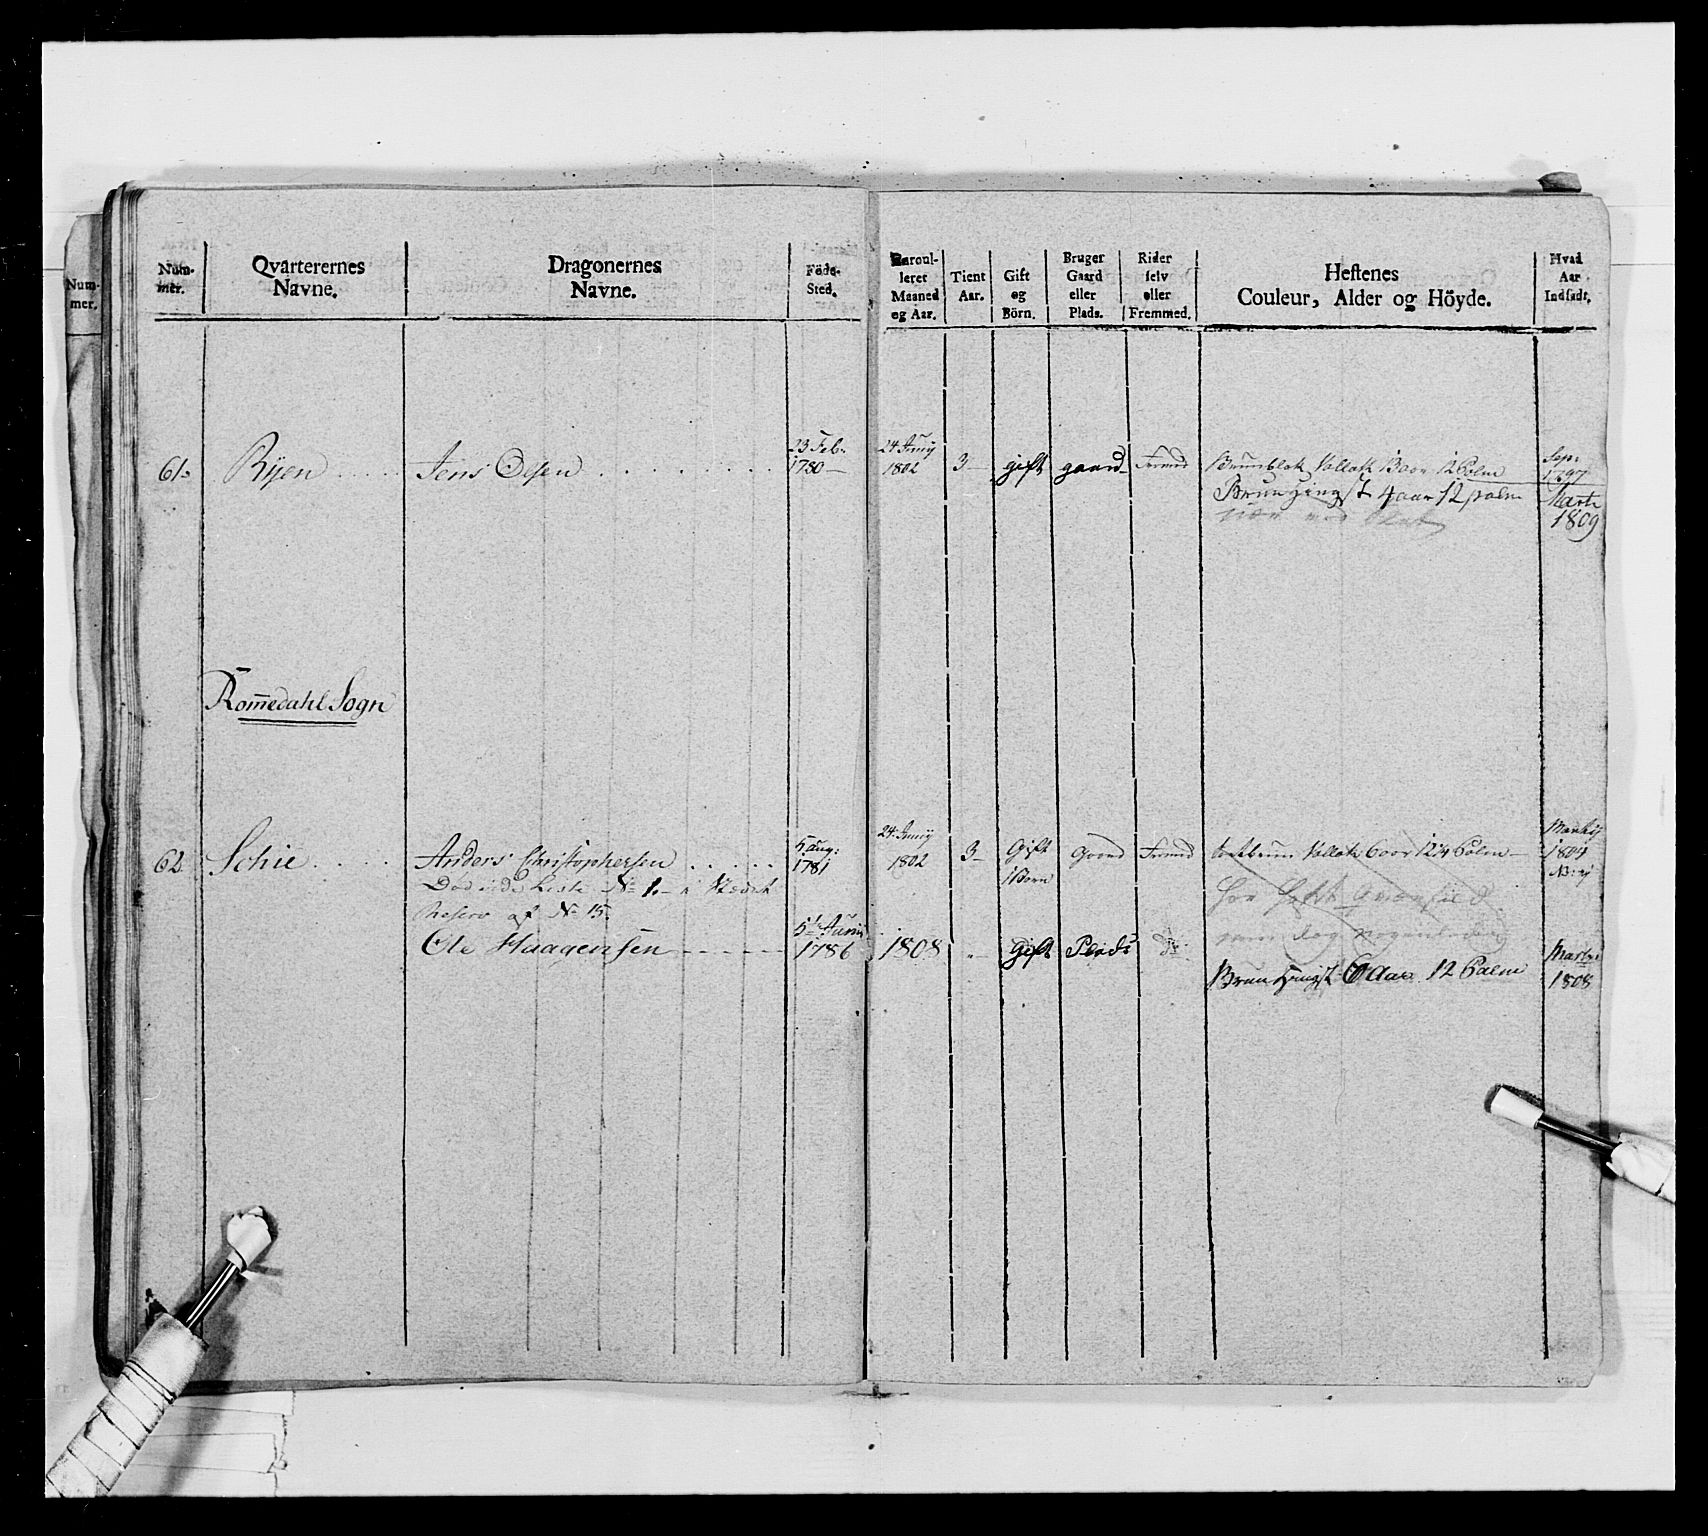 Num-
mer.
Num-
mer.
Qvarterernes
Navne.
Dragonernes
Navne.
Föde-
Sted.
Enroul-
leret
Maaned
og Aar.
Tient
Aar.
Gift
og
Börn.
Bruger
Gaard
eller
Plads.
Rider
selv
eller
Fremmed.
Hestenes
Couleur, Alder og Höyde.
Hvad
Aar
Indsadt.
61. Ryen Jens Olsen 23 Feb: 1780 24 Junij 1802 3 gift gaard Fremd Brunblak Vallak 13 aar 12 Palm Sep: 1797
Brun Hingst 4 aar 12 palm Marti 1809
Rommedahl Sogn
62. Schie Anders Christophersen 5 aug: 1781 24 Junij 1802 3 Gift 1 Barn Gaard Fremd Vallak 6 aar 12 1/4 Palm Martij 1804
No 1
Reserv af No 15
Ole Haagensen 5te Junii 1786 1808 Gift Plads do Brun Hingst 6 Aar 12 Palm Marti 1808